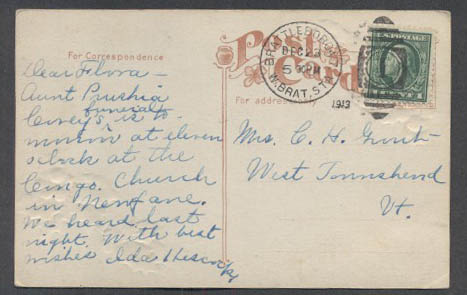 For Correspondence
Post Card
BRATTLEBORO, VT.
DEC 23
5 30PM
1913
W. BRAT. STA.
For address only
Dear Flora –
Aunt
funeral
is to
morrow at eleven
o'clock at the
Congo. Church
in Newfane.
We heard last
night. With best
wishes Ida
Mrs. C. H. Grout –
West Townshend
Vt.